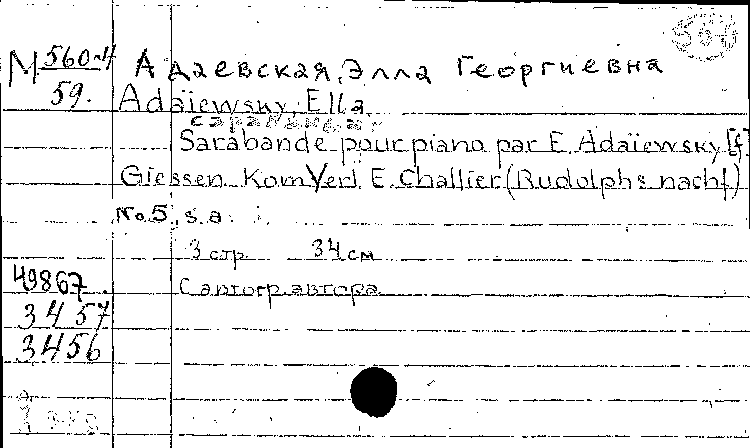 М 560-4 Адаевская, Элла Георгиевна
59. Adaïewsky, Ella
Сарабанда.
Sarabande pour piano par E. Adaïewsky [f]
Giessen. Kom Verl. E. Challier (Rudolphs nachf)
No. 5, s.a.
3 стр. 34 см
49867. С автогр. автора
3457
3456